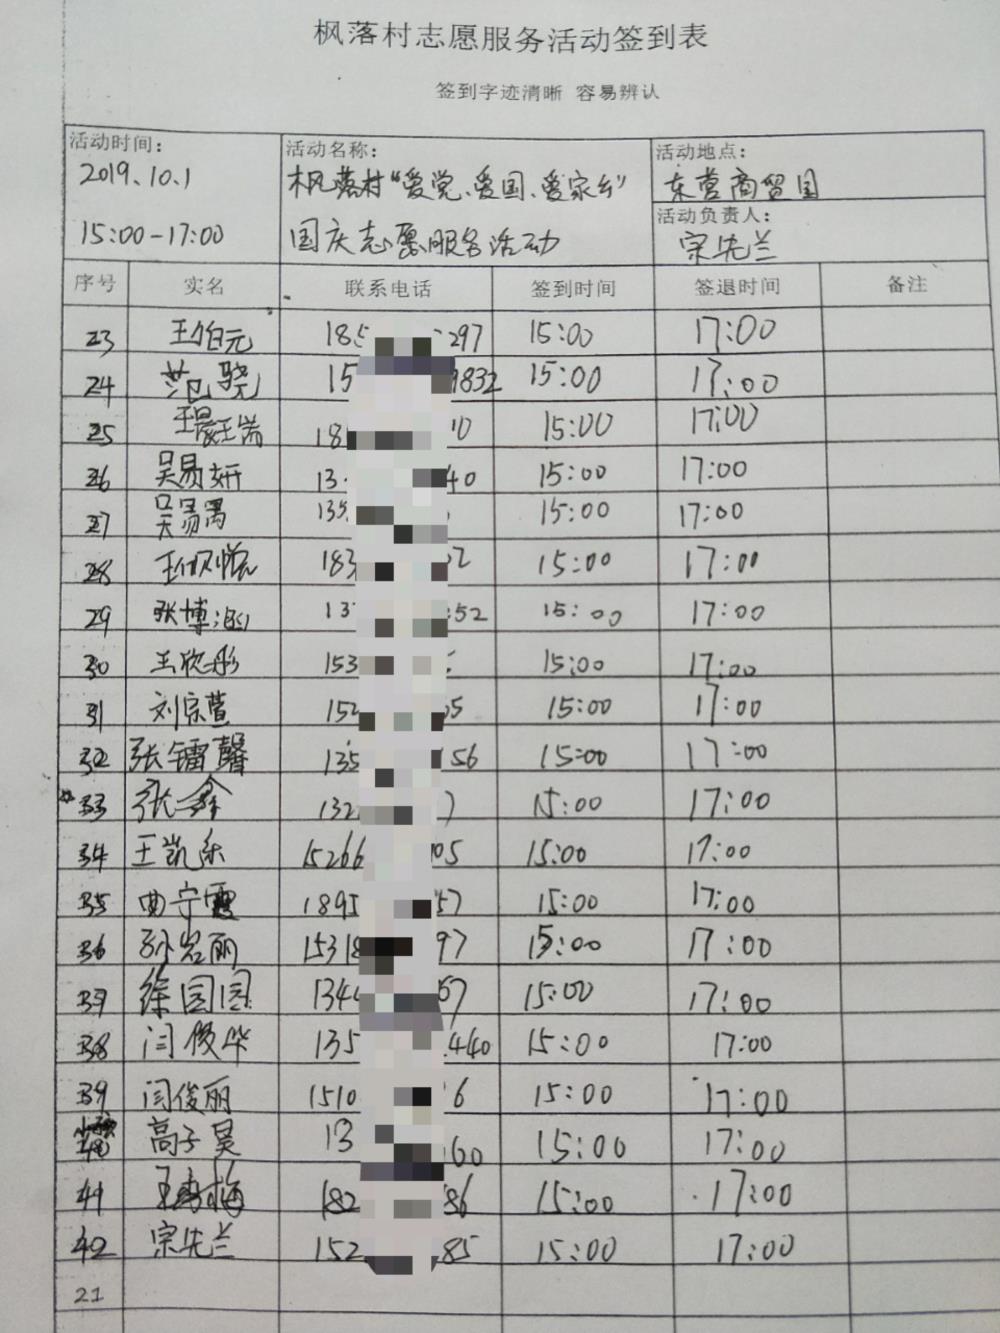 枫落村志愿服务活动签到表
签到字迹清晰 容易辨认
活动时间: 活动名称: 活动地点:
2019.10.1 枫落村“爱党、爱国、爱家乡” 东营商贸园
活动负责人:
15:00-17:00 国庆志愿服务活动 宗先兰
序号 实名 联系电话 签到时间 签退时间 备注
23 王伯元 185 297 15:00 17:00
24 范骁 15 9832 15:00 17:00
25 18 10 15:00 17:00
26 吴易妍 13 40 15:00 17:00
27 吴易禺 135 15:00 17:00
28 183 2 15:00 17:00
29 张博涵 13 52 15:00 17:00
30 王欣彤 153 15:00 17:00
31 刘宗萱 152 05 15:00 17:00
32 张镭馨 135 156 15:00 17:00
33 张鑫 132 15:00 17:00
34 王凯乐 15266 05 15:00 17:00
35 曲宁霞 1895 57 15:00 17:00
36 孙岩丽 15318 97 15:00 17:00
37 徐园园 1344 67 15:00 17:00
38 闫俊华 135 440 15:00 17:00
39 闫俊丽 1510 6 15:00 17:00
40 高子昊 13 160 15:00 17:00
41 182 86 15:00 17:00
42 宗先兰 152 85 15:00 17:00
21